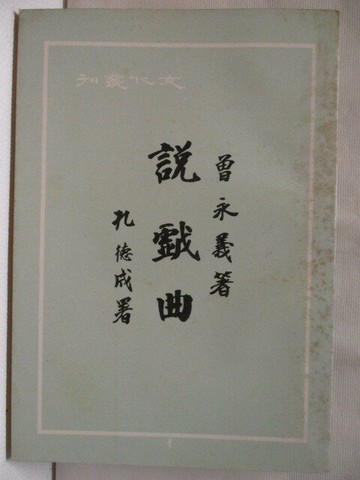 文化叢刊
曾永義著
說戲曲
孔德成署